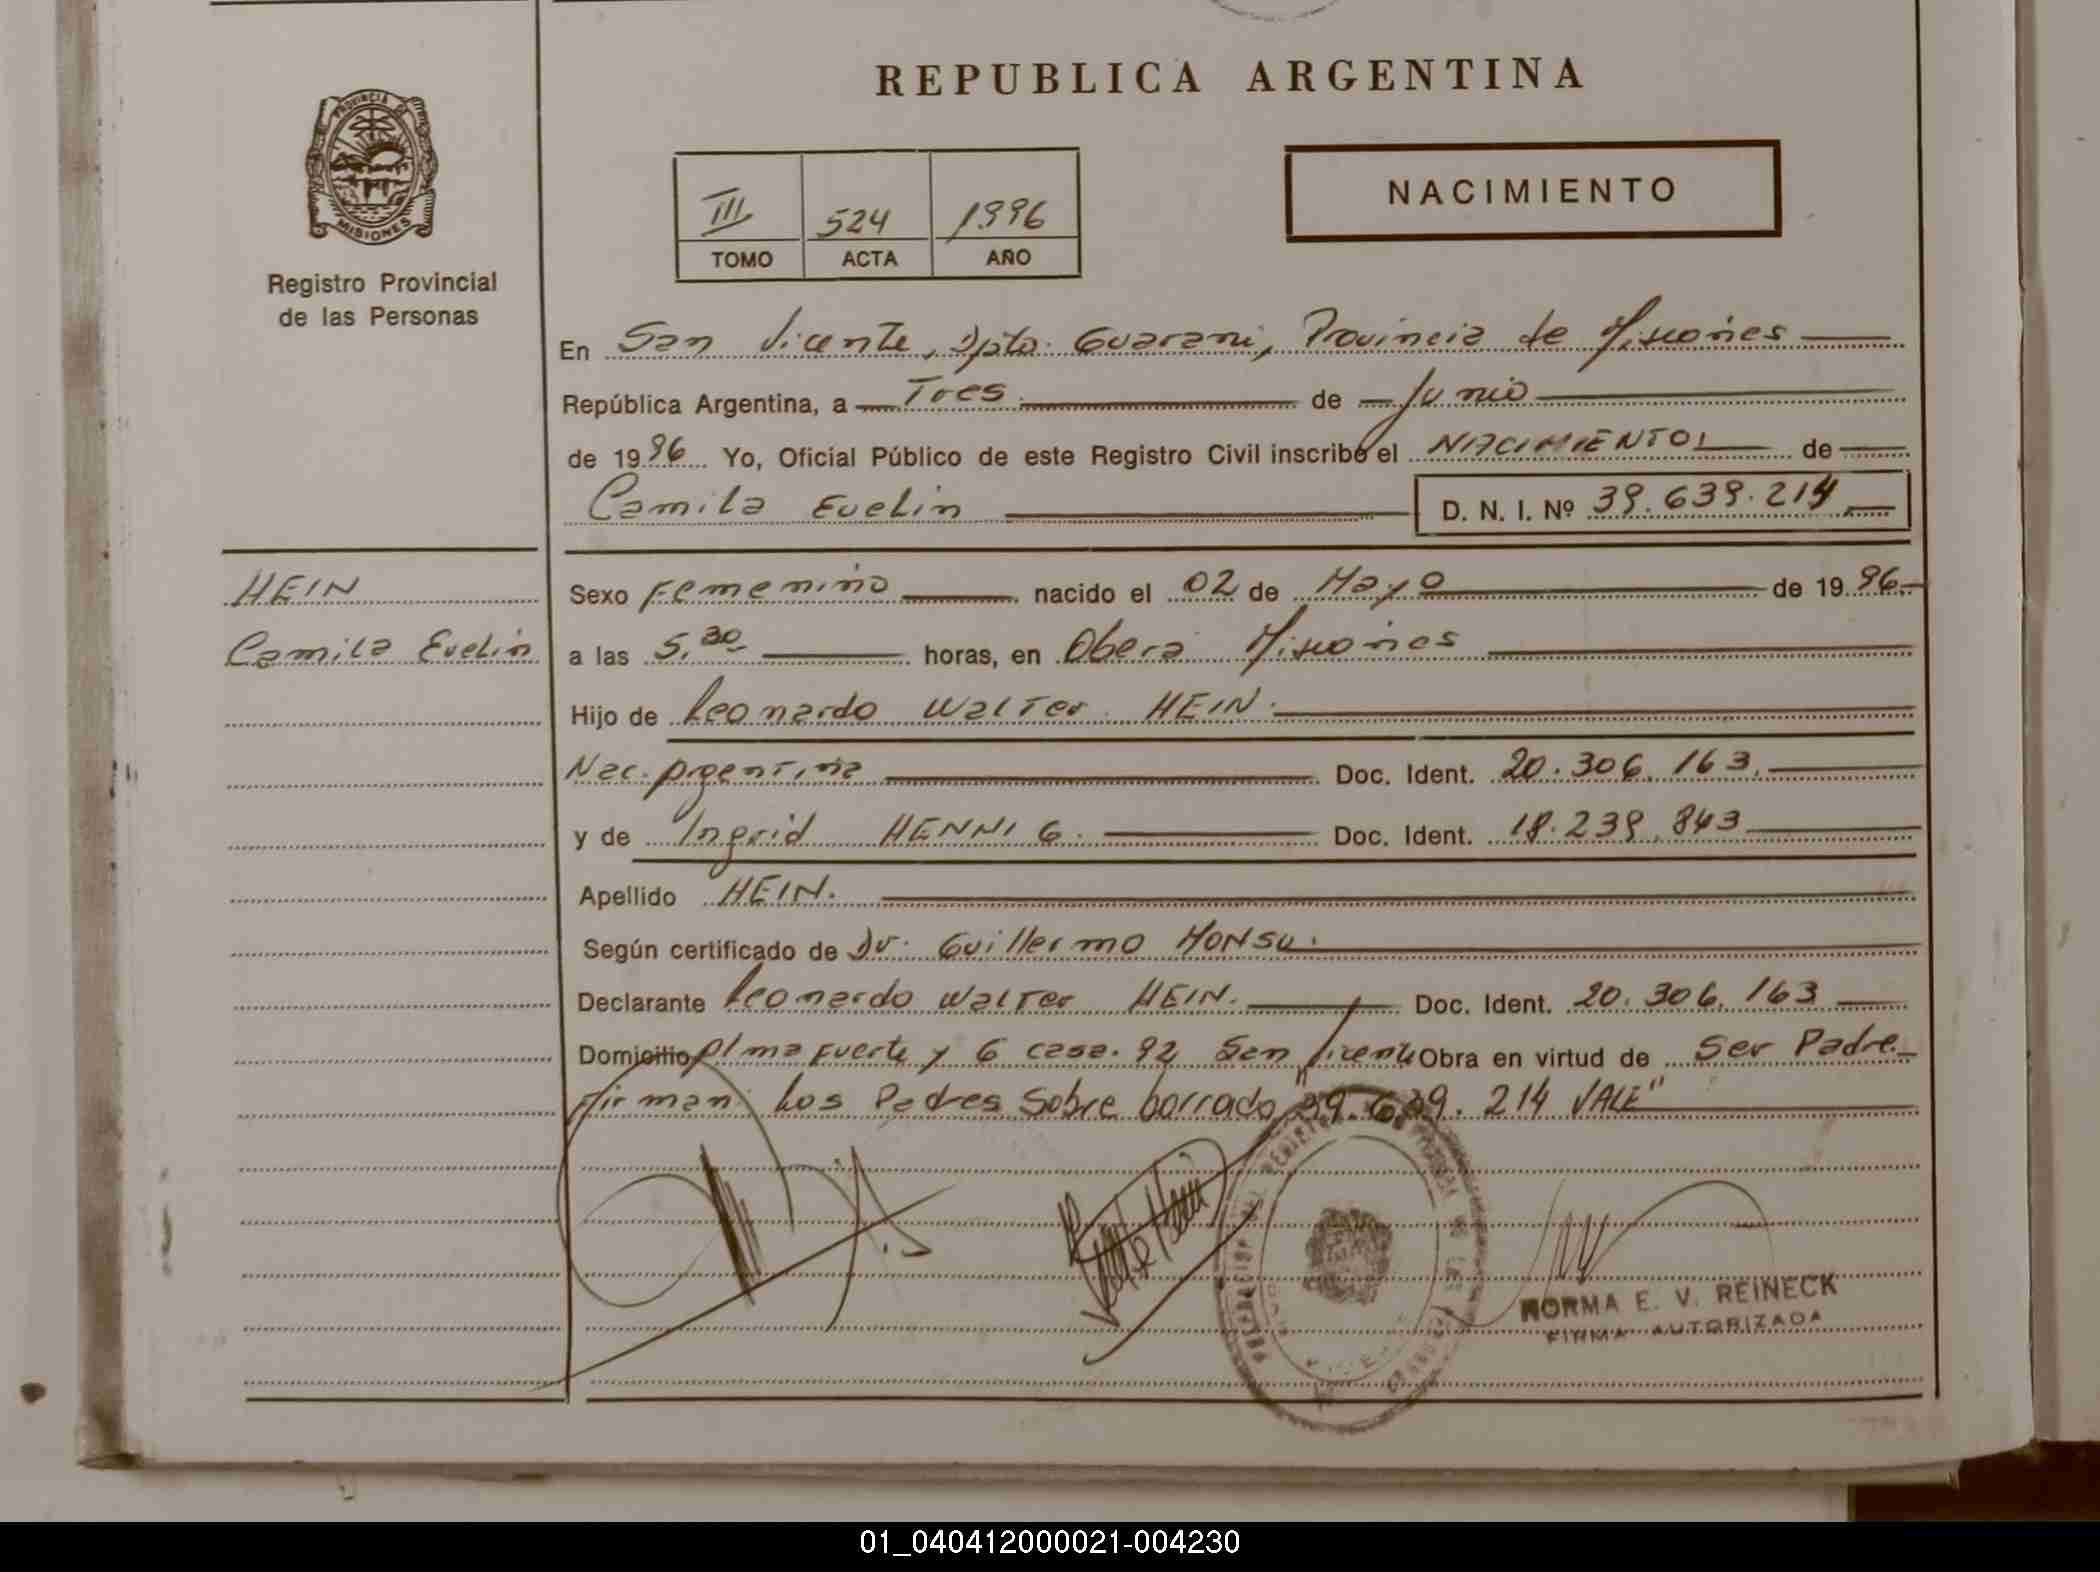 REPUBLICA ARGENTINA
PROVINCIA DE
MISIONES
Registro Provincial
de las Personas
III 524 1996
TOMO ACTA AÑO
NACIMIENTO
En San Vicente, Dpto. Guarani, Provincia de Misiones
República Argentina, a Tres de Junio
de 1996 Yo, Oficial Público de este Registro Civil inscribo el NACIMIENTO de
Camila Evelin D. N. I. Nº 39.639.214
HEIN
Camila Evelin
Sexo Femenino nacido el 02 de Mayo de 1996
a las 5,30 horas, en Obera Misiones
Hijo de Leonardo Walter HEIN.
Nac. Argentina Doc. Ident. 20.306.163.
y de Ingrid HENNIG. Doc. Ident. 18.239.843
Apellido HEIN.
Según certificado de Dr. Guillermo
Declarante Leonardo Walter HEIN. Doc. Ident. 20.306.163
Domicilio Alma Fuerte y 6 casa. 92 San Vicente Obra en virtud de Ser Padre
Firman: Los Padres Sobre borrado "39.639.214 VALE"
NORMA E. V. REINECK
FIRMA AUTORIZADA
01_040412000021-004230